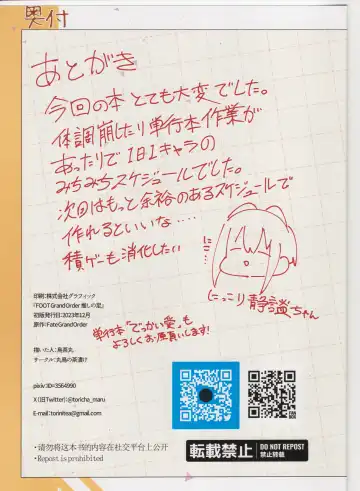 奥付
あとがき
今回の本とても大変でした。
体調崩したり単行本作業が
あったりで1日1キャラの
みちみちスケジュールでした。
次回はもっと余裕のあるスケジュールで
作れるといいな....
積ゲーも消化したい
にこ…
にっこり静謐ちゃん
印刷:株式会社グラフィック
『FOOT Grand Order 推しの足』
初版発行日:2023年12月
原作:Fate Grand Order
単行本"でっかい愛"も
よろしくお願いします!
描いた人:鳥茶丸
サークル:丸鳥の茶漬け
pixiv:ID=3564990
X(旧Twitter):@toricha_maru
E-mail:torinitea@gmail.com
・请勿将这本书的内容在社交平台上公开
・Repost is prohibited
転載禁止
DO NOT REPOST
禁止转载